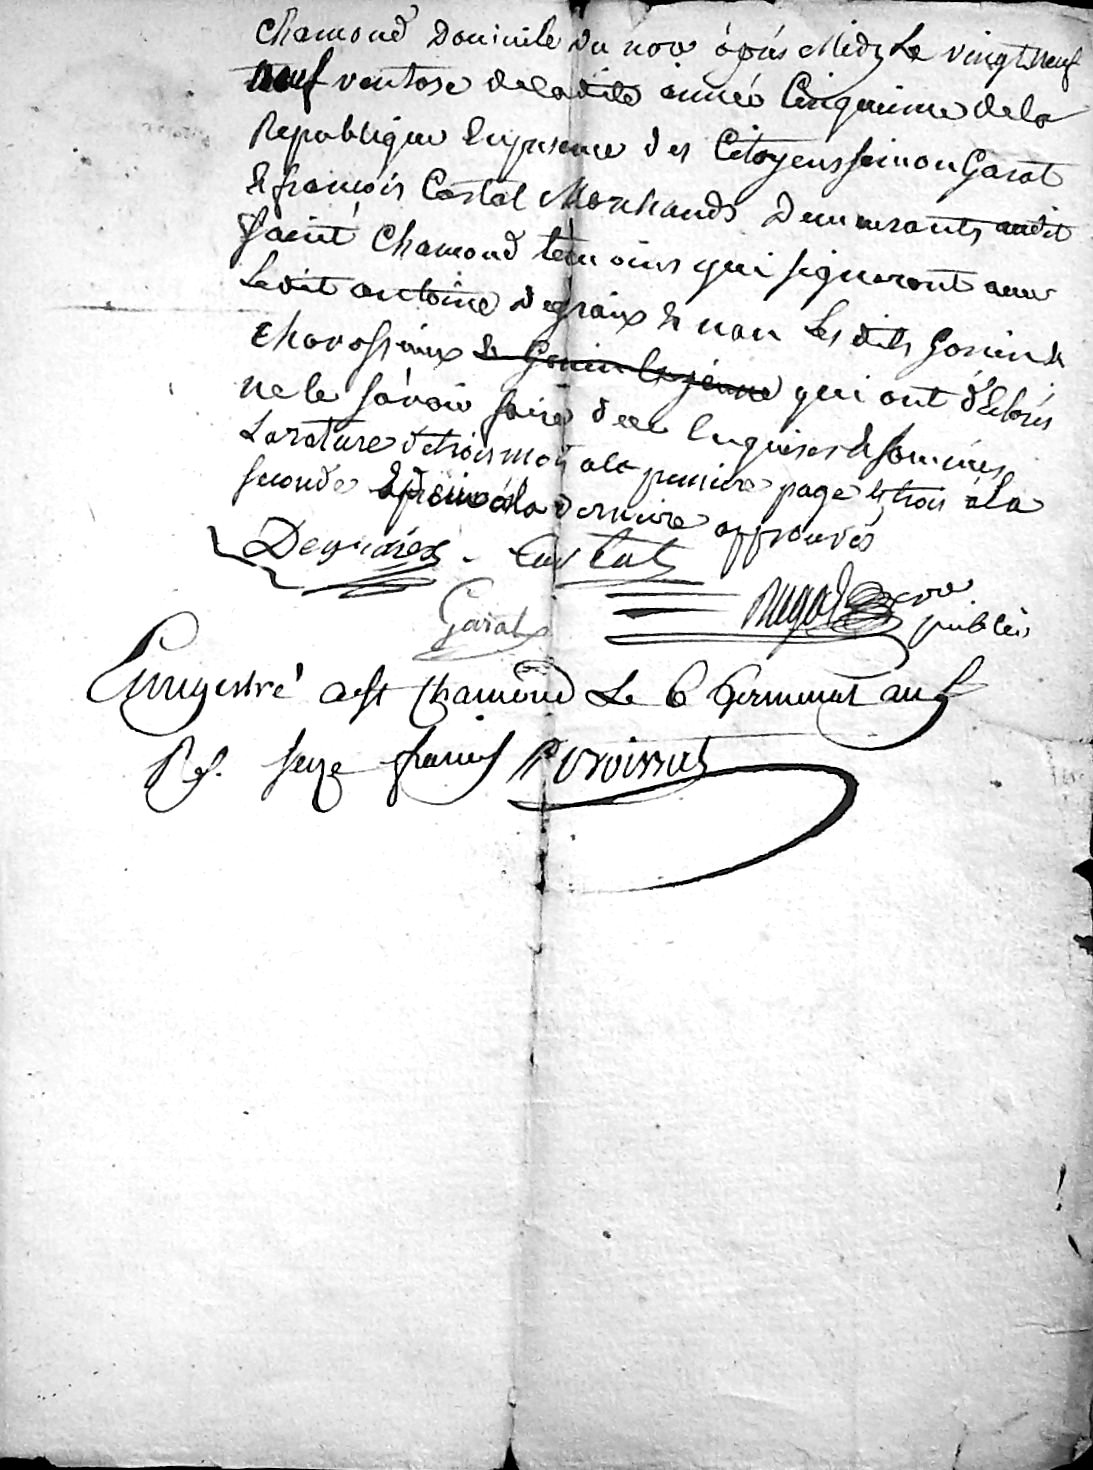 Chamond Domicile du no.re apres Midy Le vingt neuf
neuf ventose de ladite année Cinquieme de la
Republique En presence des Citoyens Simon Garat
& françois Castat Marchands Demeurants audit
Saint Chamond temoins qui signeront avec
Ledit antoine degraix & non Les dits Gonin &
Chavassieux Le Gonin Le jeune qui ont déclarés
ne le sávoir faire de ce Enquis & Sommés
La rature de trois mots a la premiere page & trois á la
seconde á la derniere approuvés
Degraix Castat
Garat not.re public
Enregistré a St Chamond Le 6 Germinal an 5
R.f. seize francs